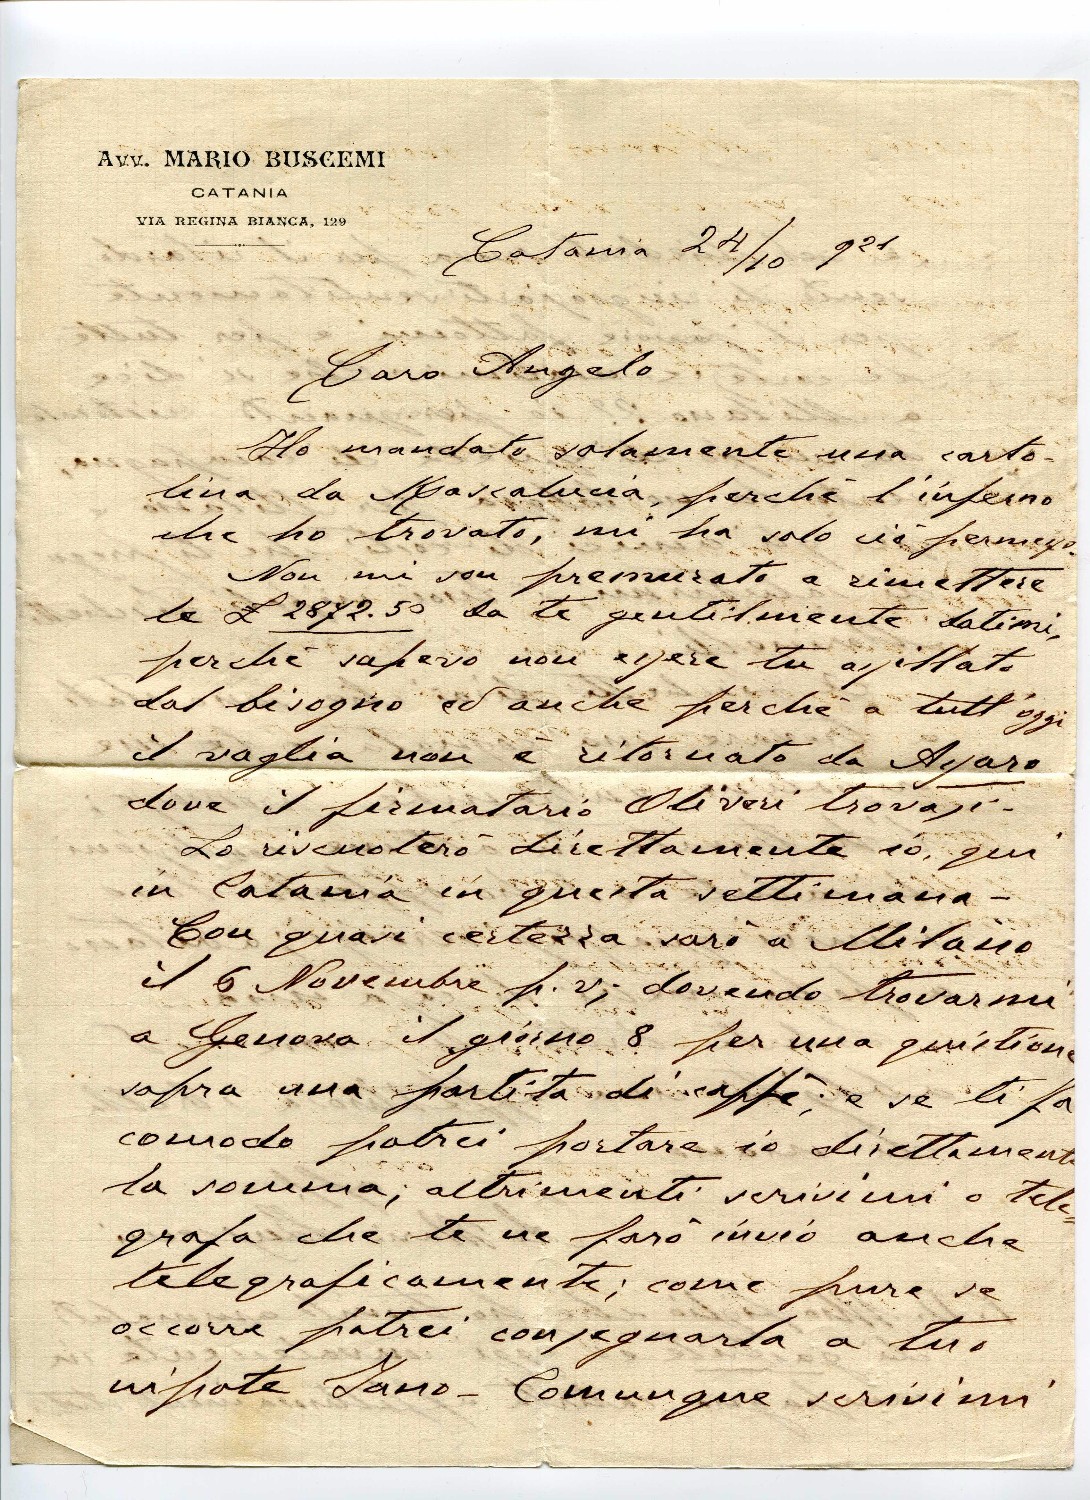 Avv. MARIO BUSCEMI
CATANIA
VIA REGINA BIANCA, 129
Catania 24/10 921
Caro Angelo
Ho mandato solamente una carto-
lina da Mascalucia, perchè l'inferno
che ho trovato, mi ha solo ciò permesso.
Non mi son premurato a rimettere
le £ 2872.50 da te gentilmente datimi,
perchè sapevo non essere tu assillato
dal bisogno ed anche perchè a tutt'oggi
il vaglia non è ritornato da Agaro
dove il firmatario Oliveri trovasi-
Lo riscuoterò direttamente io, qui
in Catania in questa settimana -
Con quasi certezza sarò a Milano
il 6 Novembre p.v; dovendo trovarmi
a Genova il giorno 8 per una quistione
sopra una partita di caffè; e se ti fa
comodo potrei portare io direttamente
la somma; altrimenti scrivimi o tele=
grafa che te ne farò invio anche
telegraficamente; come pure se
occorre potrei consegnarla a tuo
nipote Iano - Comunque scrivimi